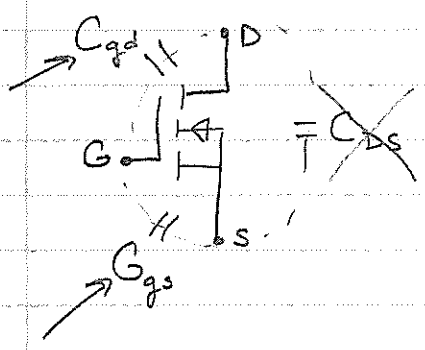 Cgd
D
G
CDS
S
Ggs